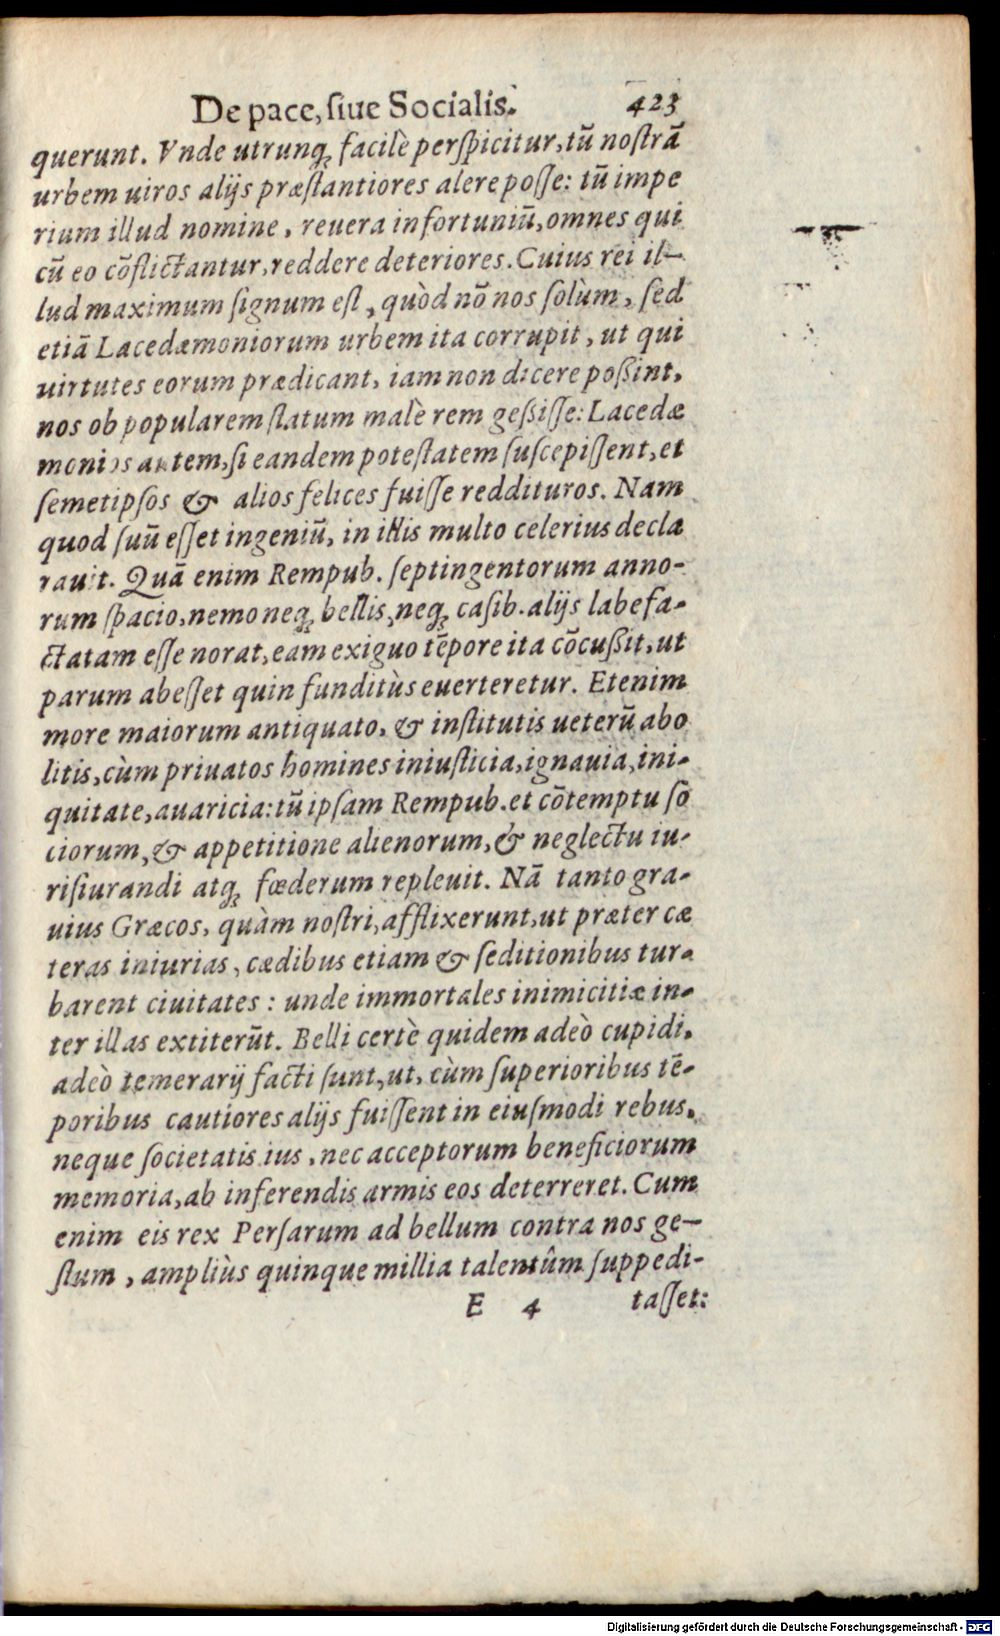 De pace, ſiue Socialis. 423
querunt. Vnde utrunq; facilè perſpicitur, tũ noſtrã
urbem uiros alijs præſtantiores alere poſſe: tũ impe
rium illud nomine, reuera infortuniũ, omnes qui
cũ eo cõflictantur, reddere deteriores. Cuius rei il-
lud maximum ſignum eſt, quòd nõ nos ſolùm, ſed
etiã Lacedæmoniorum urbem ita corrupit, ut qui
uirtutes eorum prædicant, iam non dicere poßint,
nos ob popularem ſtatum malè rem geßiſſe: Lacedæ
monios autem, ſi eandem poteſtatem ſuſcepiſſent, et
ſemetipſos & alios felices fuiſſe reddituros. Nam
quod ſuũ eſſet ingeniũ, in illis multo celerius decla
rauit. Quã enim Rempub. ſeptingentorum anno-
rum ſpacio, nemo neq; bellis, neq; caſib. alijs labefa-
ctatam eſſe norat, eam exiguo tẽpore ita cõcußit, ut
parum abeſſet quin funditùs euerteretur. Etenim
more maiorum antiquato, & inſtitutis ueterũ abo
litis, cùm priuatos homines iniuſticia, ignauia, ini-
quitate, auaricia: tũ ipſam Rempub. et cõtemptu ſo
ciorum, & appetitione alienorum, & neglectu iu-
riſiurandi atq; fœderum repleuit. Nã tanto gra-
uius Græcos, quàm noſtri, afflixerunt, ut præter cæ
teras iniurias, cædibus etiam & ſeditionibus tur-
barent ciuitates: unde immortales inimicitiæ in-
ter illas extiterũt. Belli certè quidem adeò cupidi,
adeò temerarij facti ſunt, ut, cùm ſuperioribus tẽ-
poribus cautiores alijs fuiſſent in eiuſmodi rebus,
neque ſocietatis ius, nec acceptorum beneficiorum
memoria, ab inferendis armis eos deterreret. Cum
enim eis rex Perſarum ad bellum contra nos ge-
ſtum, ampliùs quinque millia talentûm ſuppedi-
E 4 taſſet:
Digitalisierung gefördert durch die Deutsche Forschungsgemeinschaft - DFG